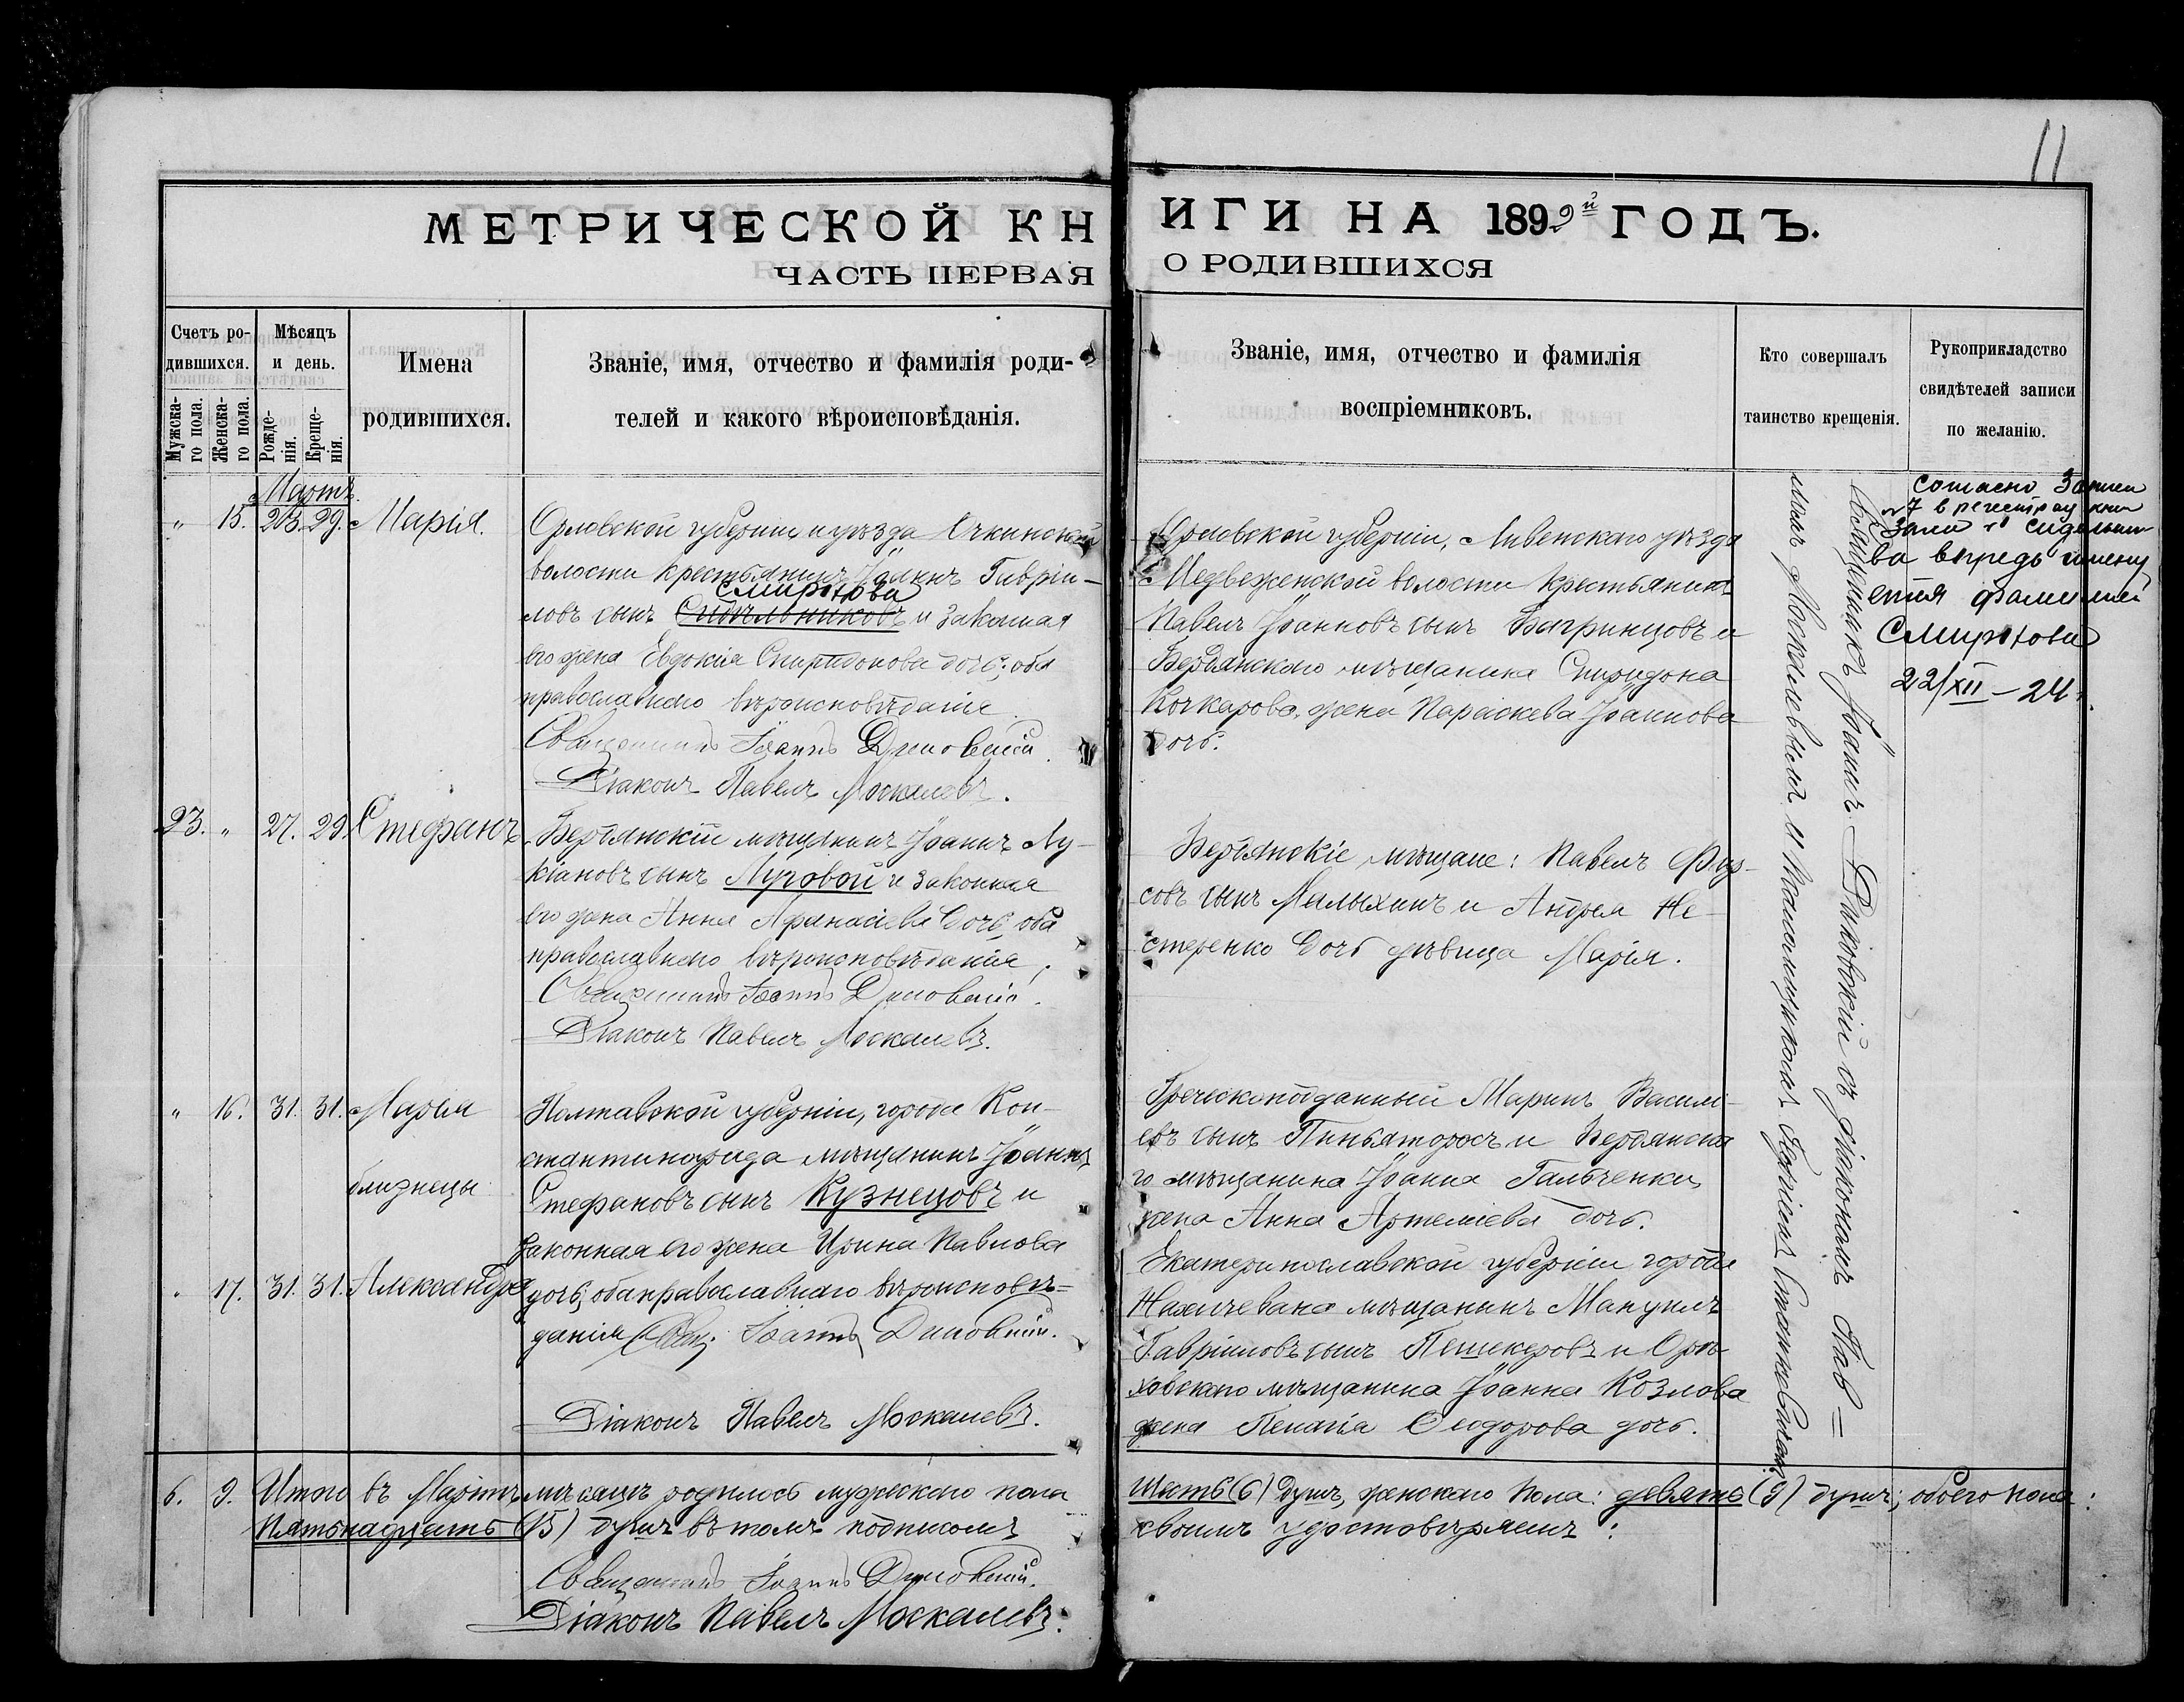 11
МЕТРИЧЕСКОЙ КНИГИ НА 1899й ГОДЪ.
ЧАСТЬ ПЕРВАЯ О РОДИВШИХСЯ
Счетъ родившихся.
Мужскаго пола.
Женскаго пола.
Мѣсяцъ и день.
Рожденія.
Крещенія.
Имена
родившихся.
Званіе, имя, отчество и фамилія роди-
телей и какого вѣроисповѣданія.
Званіе, имя, отчество и фамилія
воспріемниковъ.
Кто совершалъ
таинство крещенія.
Рукоприкладство
свидѣтелей записи
по желанію.
Мартъ.
" 15. 29. Марія.
Орловской губерніи и уѣзда
волости крестьянинъ Іоаннъ Гаврiи-
Смирнова
ловъ сынъ Сидельниковъ и законная
его жена Евдокія Спиридонова дочь; оба
православнаго вѣроисповѣданія
Священникъ Іоаннъ
Діаконъ Павелъ Москалевъ.
Орловской губерніи, Ливенскаго уѣзда
Медвеженской волости крестьянинъ
Павелъ Іоанновъ сынъ Багринцовъ и
Бердянскаго мѣщанина Спиридона
Кочкарова, жена Параскева Іоаннова
дочь.
23. " 27. 29. Стефанъ
Бердянскій мѣщанинъ Іоаннъ Лу-
кіановъ сынъ Луговой и законная
его жена Анна Афанасіева дочь, оба
православнаго вѣроисповѣданія;
Священникъ Іоаннъ
Діаконъ Павелъ Москалевъ.
Бердянскіе мѣщане: Павелъ
совъ сынъ Малыхинъ и Андрея Не-
стеренко дочь дѣвица Марія.
" 16. 31. 31. Марія
близнецы
" 17. 31. 31. Александра
Полтавской губерніи, города Кон-
стантинограда мѣщанинъ Іоаннъ
Стефановъ сынъ Кузнецовъ и
законная его жена Ирина Павлова
дочь; оба православнаго вѣроисповѣ=
данія Свящ. Іоаннъ
Діаконъ Павелъ Москалевъ.
Греческоподданный Маринъ Василі-
евъ сынъ и Бердянска
го мѣщанина Іоанна Гальченки,
жена Анна Артеміева дочь.
Екатеринославской губерніи города
Нахичевана мѣщанинъ Мануилъ
Гавріиловъ сынъ Пешекеровъ и Орѣ-
ховскаго мѣщанина Іоанна Козлова
жена Пелагія Ѳеодорова дочь.
Священникъ Іоаннъ съ діакономъ Пав=
ломъ Москалевымъ и псаломщикомъ
Согласно записи
№7 в регистрац. кни
зали
ва впредь имену
ется фамилией
Смирнова
22/XII - 24.
6. 9. Итого въ Мартѣ мѣсяцѣ родилось мужескаго пола шесть (6) душъ, женскаго пола: девять (9) душъ; обоего пола:
пятьнадцать (15) душъ въ томъ подписомъ своимъ удостовѣряемъ:
Священникъ Іоаннъ
Діаконъ Павелъ Москалевъ.